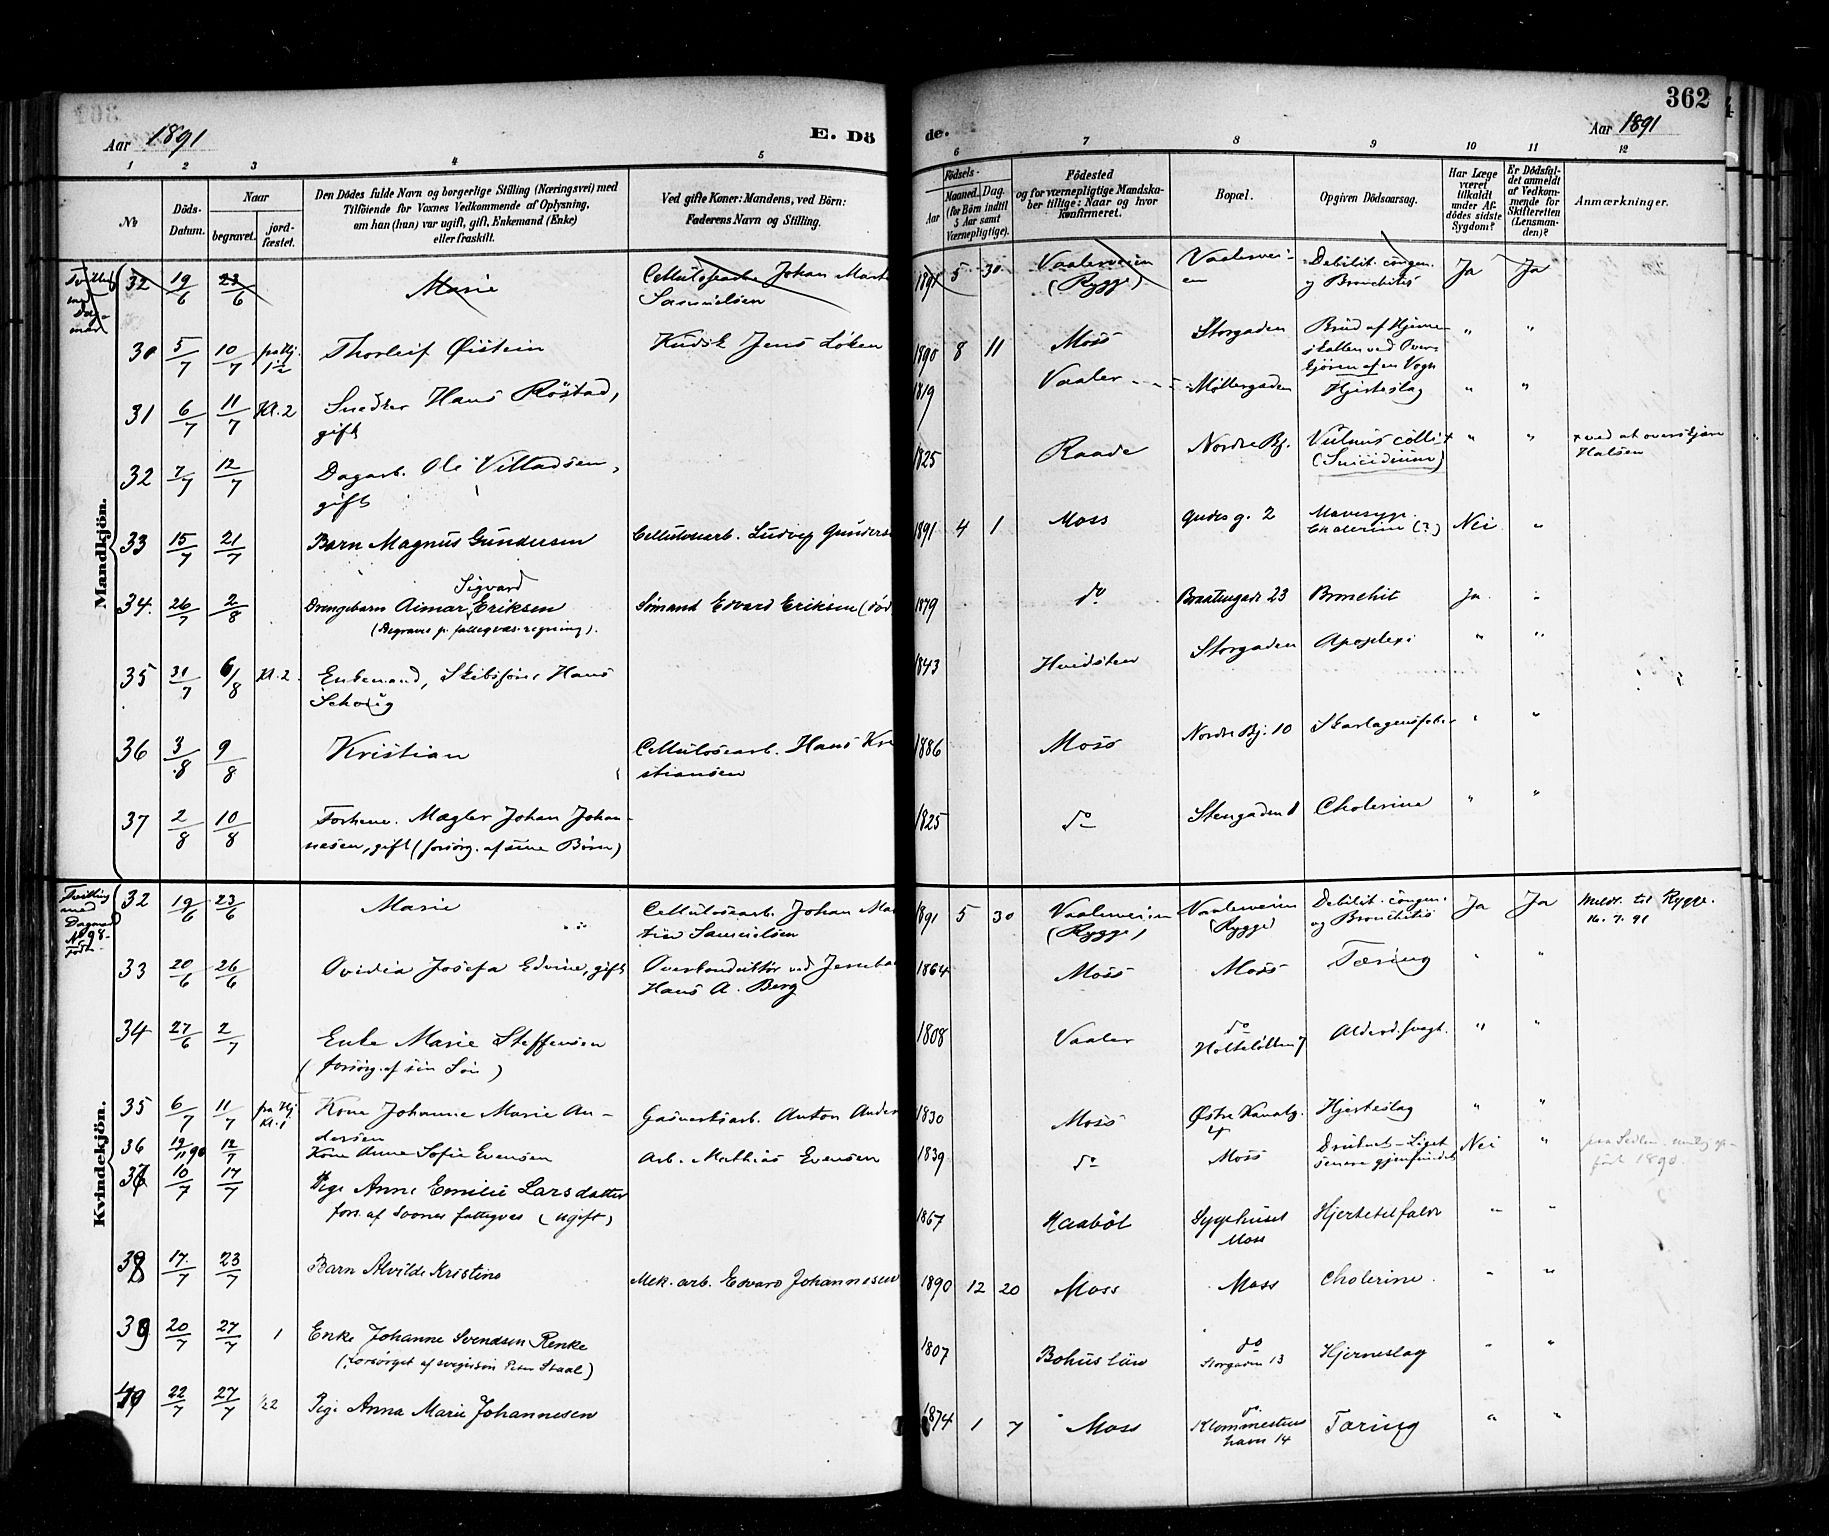 362
Aar 1891
E. Dö
de.
Aar 1891
1 2 3 4 5 6 7 8 9 10 11 12
No
Döds-Datum.
Naar
begravet.
jord-fæstet.
Den Dödes fulde Navn og borgerlige Stilling (Næringsvei) med
Tilföiende for Voxnes Vedkommende af Oplysning,
om han (hun) var ugift, gift, Enkemand (Enke)
eller fraskilt.
Ved gifte Koner: Mandens, ved Börn:
Faderens Navn og Stilling.
Födsels-
Aar
Maaned. Dag.
(for Börn indtil
5 Aar samt
Værnepligtige).
Födested
og for værnepligtige Mandska-
ber tillige: Naar og hvor
konfirmeret.
Bopæl.
Opgiven Dödsaarsag.
Har Læge
været
tilkaldt
under Af-
dödes sidste
Sygdom?
Er Dödsfal-
det anmeldt
af Vedkom-
mende for
Skifteretten
(Lensman-
den)?
Anmærkninger.
Mandkjön.
32 19/6 23/6 Marie Johan Mart
Samuelsen 1891 5 30 Vaalerveien
(Rygge) Vaalervei-
en Debilit. congen.
og Bronchitis Ja Ja
30 5/7 10/7 Thorleif Øistein Kudsk Jens Løken 1890 8 11 Moss Storgaden Brud af Hjerne-
skallen ved Over-
kjøren af en Vogn " "
31 6/7 11/7 Kl. 2 Snedker Hans Röstad,
gift 1819 Vaaler Møllergaden Hjerteslag " "
32 7/7 12/7 Dagarb. Ole Villadsen,
gift 1825 Raade Nordre Bj. Vulnus colli +
(Suicidium) " " + ved at overskjære
Halsen
33 15/7 21/7 Barn Magnus Gundersen Cellulosearb. Ludvig Gunderse 1891 4 1 Moss Gudes g. 2 Mavesyge.
Cholerine (?) Nei "
34. 26/7 2/8 Drengebarn Aimar Sigvard Eriksen
(Begraves p. fattigvæs. regning). Sømand Edvard Eriksen (død 1879 do Braatengade 23 Bronchit Ja "
35 31/7 6/8 Kl. 2. Enkemand, Skibsfører Hans
1843 Hvidsten Storgaden Apoplexi " "
36 3/8 9/8 Kristian Cellulosearb. Hans Kri
stiansen 1886 Moss Nordre Bj. 10 Skarlagensfeber " "
37 2/8 10/8 Forhenv. Mægler Johan Johan-
nesen, gift (forsørg. af sine Børn) 1825 do Stengaden 1 Cholerine " "
Kvindekjön.
Tvilling
med
Dagmar
No 98
födte
32 19/6 23/6 Marie Cellulosearb. Johan Mar
tin Samuelsen 1891 5 30 Vaalerveien
(Rygge) Vaalerveien
(Rygge) Debilit. congen.
og Bronchitis Ja Ja Meldt til Rygge.
16.7.91
33 20/6 26/6 Ovidia Josefa Edvine, gift Overkonduktør ved Jernba
Hans A. Berg 1864 Moss Moss Tæring " "
34 27/6 2/7 Enke Marie Steffensen
(forsørg. af sin Søn) 1808 Vaaler do
Alderd. svagh. " "
35 6/7 11/7 Kl. 1 Kone Johanne Marie An-
dersen Gasverksarb. Anton Ander 1830 Moss Østre Kanalg.
4 Hjerteslag " "
36 19/11 90 12/7 Kone Anne Sofie Evensen Arb. Mathias Evensen 1839 do Moss Druknet - Liget
senere gjenfundet Nei "
1890.
37 10/7 17/7 Pige Anne Emilie Larsdatter
fors. af Soones fattigvæs (ugift) 1867 Haabøl Sygehuset
Moss Hjertefeil " "
38 17/7 23/7 Barn Alvilde Kristine Mek. arb. Edvard Johannesen 1890 12 20 Moss Moss Cholerine " "
39 20/7 27/7 1 Enke Johanne Svendsen Renke
(forsørget af svigersøn Peter Staal) 1807 Bohuslän do
Storgaden 13 Hjerneslag " "
40 22/7 27/7 Pige Anna Marie Johannesen 1874 1 7 Moss do.
havn 14 Tæring " "